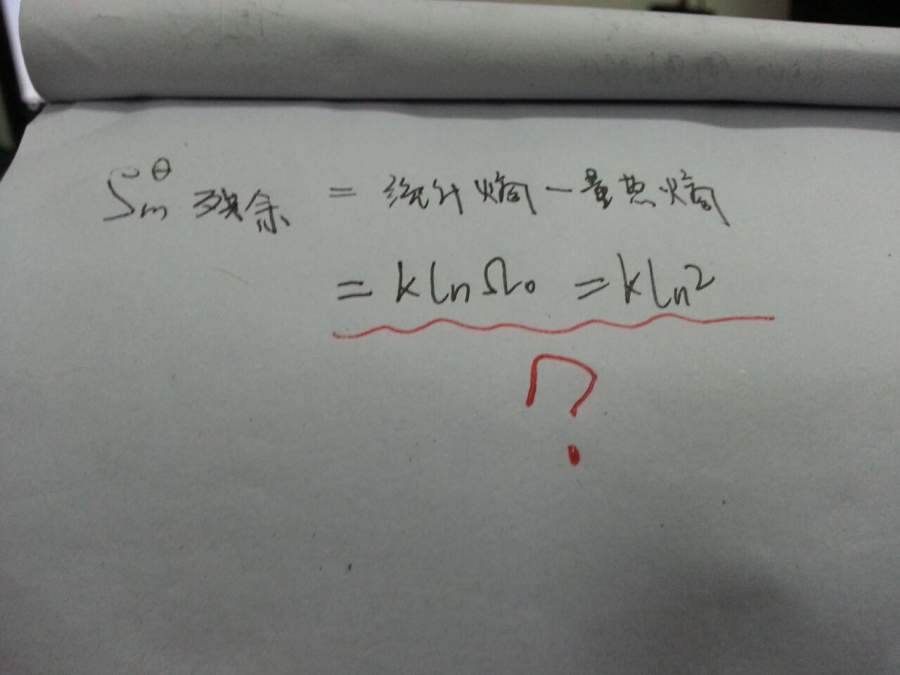 Sm^θ 残余 = 统计熵 - 量热熵
= k ln Ω₀ = k ln 2
?